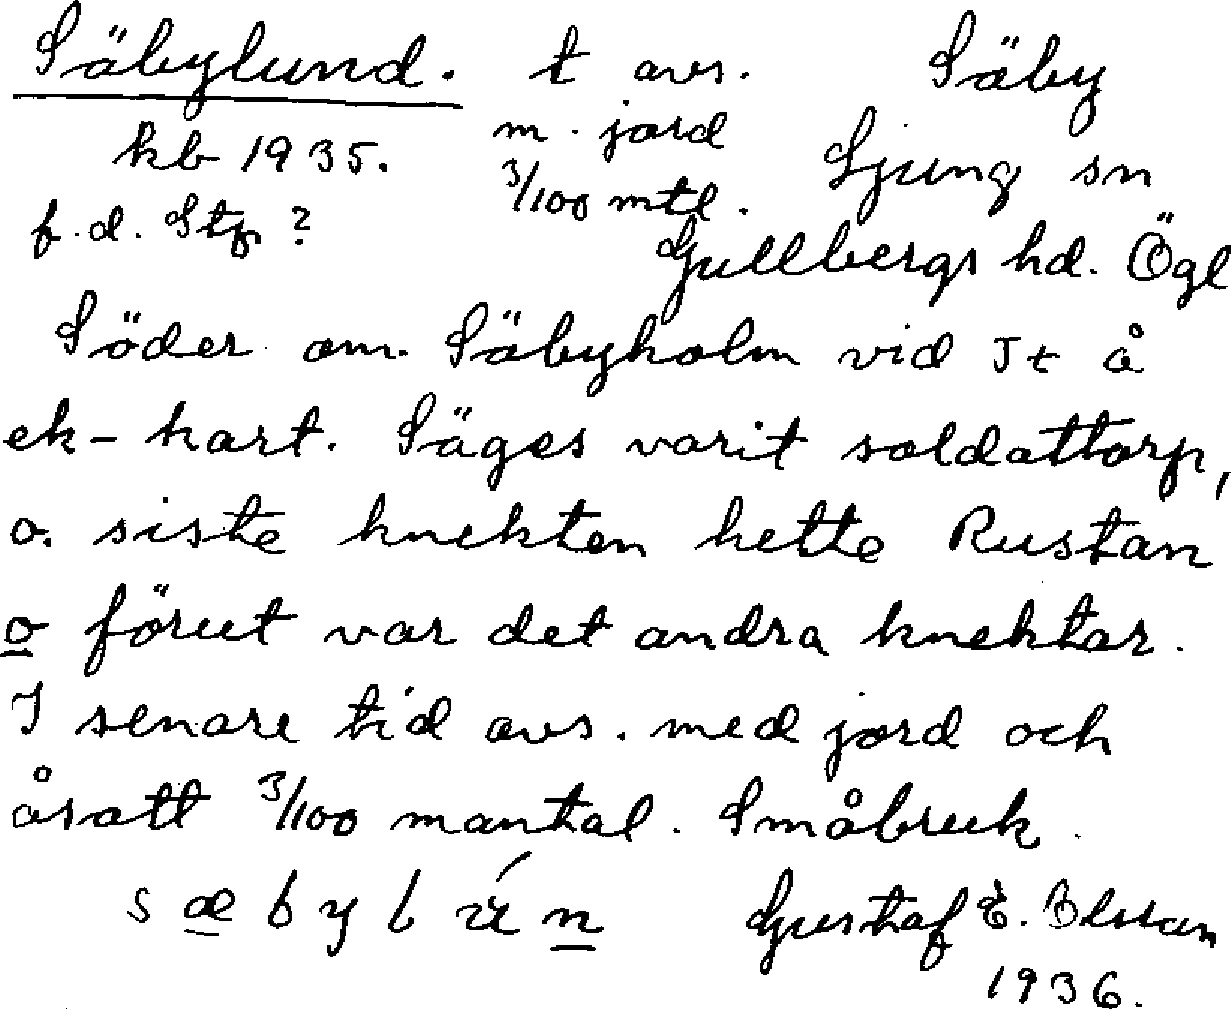 Säbylund. t avs. Säby
kb 1935. m. jord Ljung sn
f.d. Stp? 3/100 mtl. Gullbergs hd. Ögl
Söder om Säbyholm vid St å
ek-kart. Säges varit soldattorp,
o. siste knekten hette Rustan
o förut var det andra knektar.
I senare tid avs. med jord och
åsatt 3/100 mantal. Småbruk.
Gustaf E.
1936.